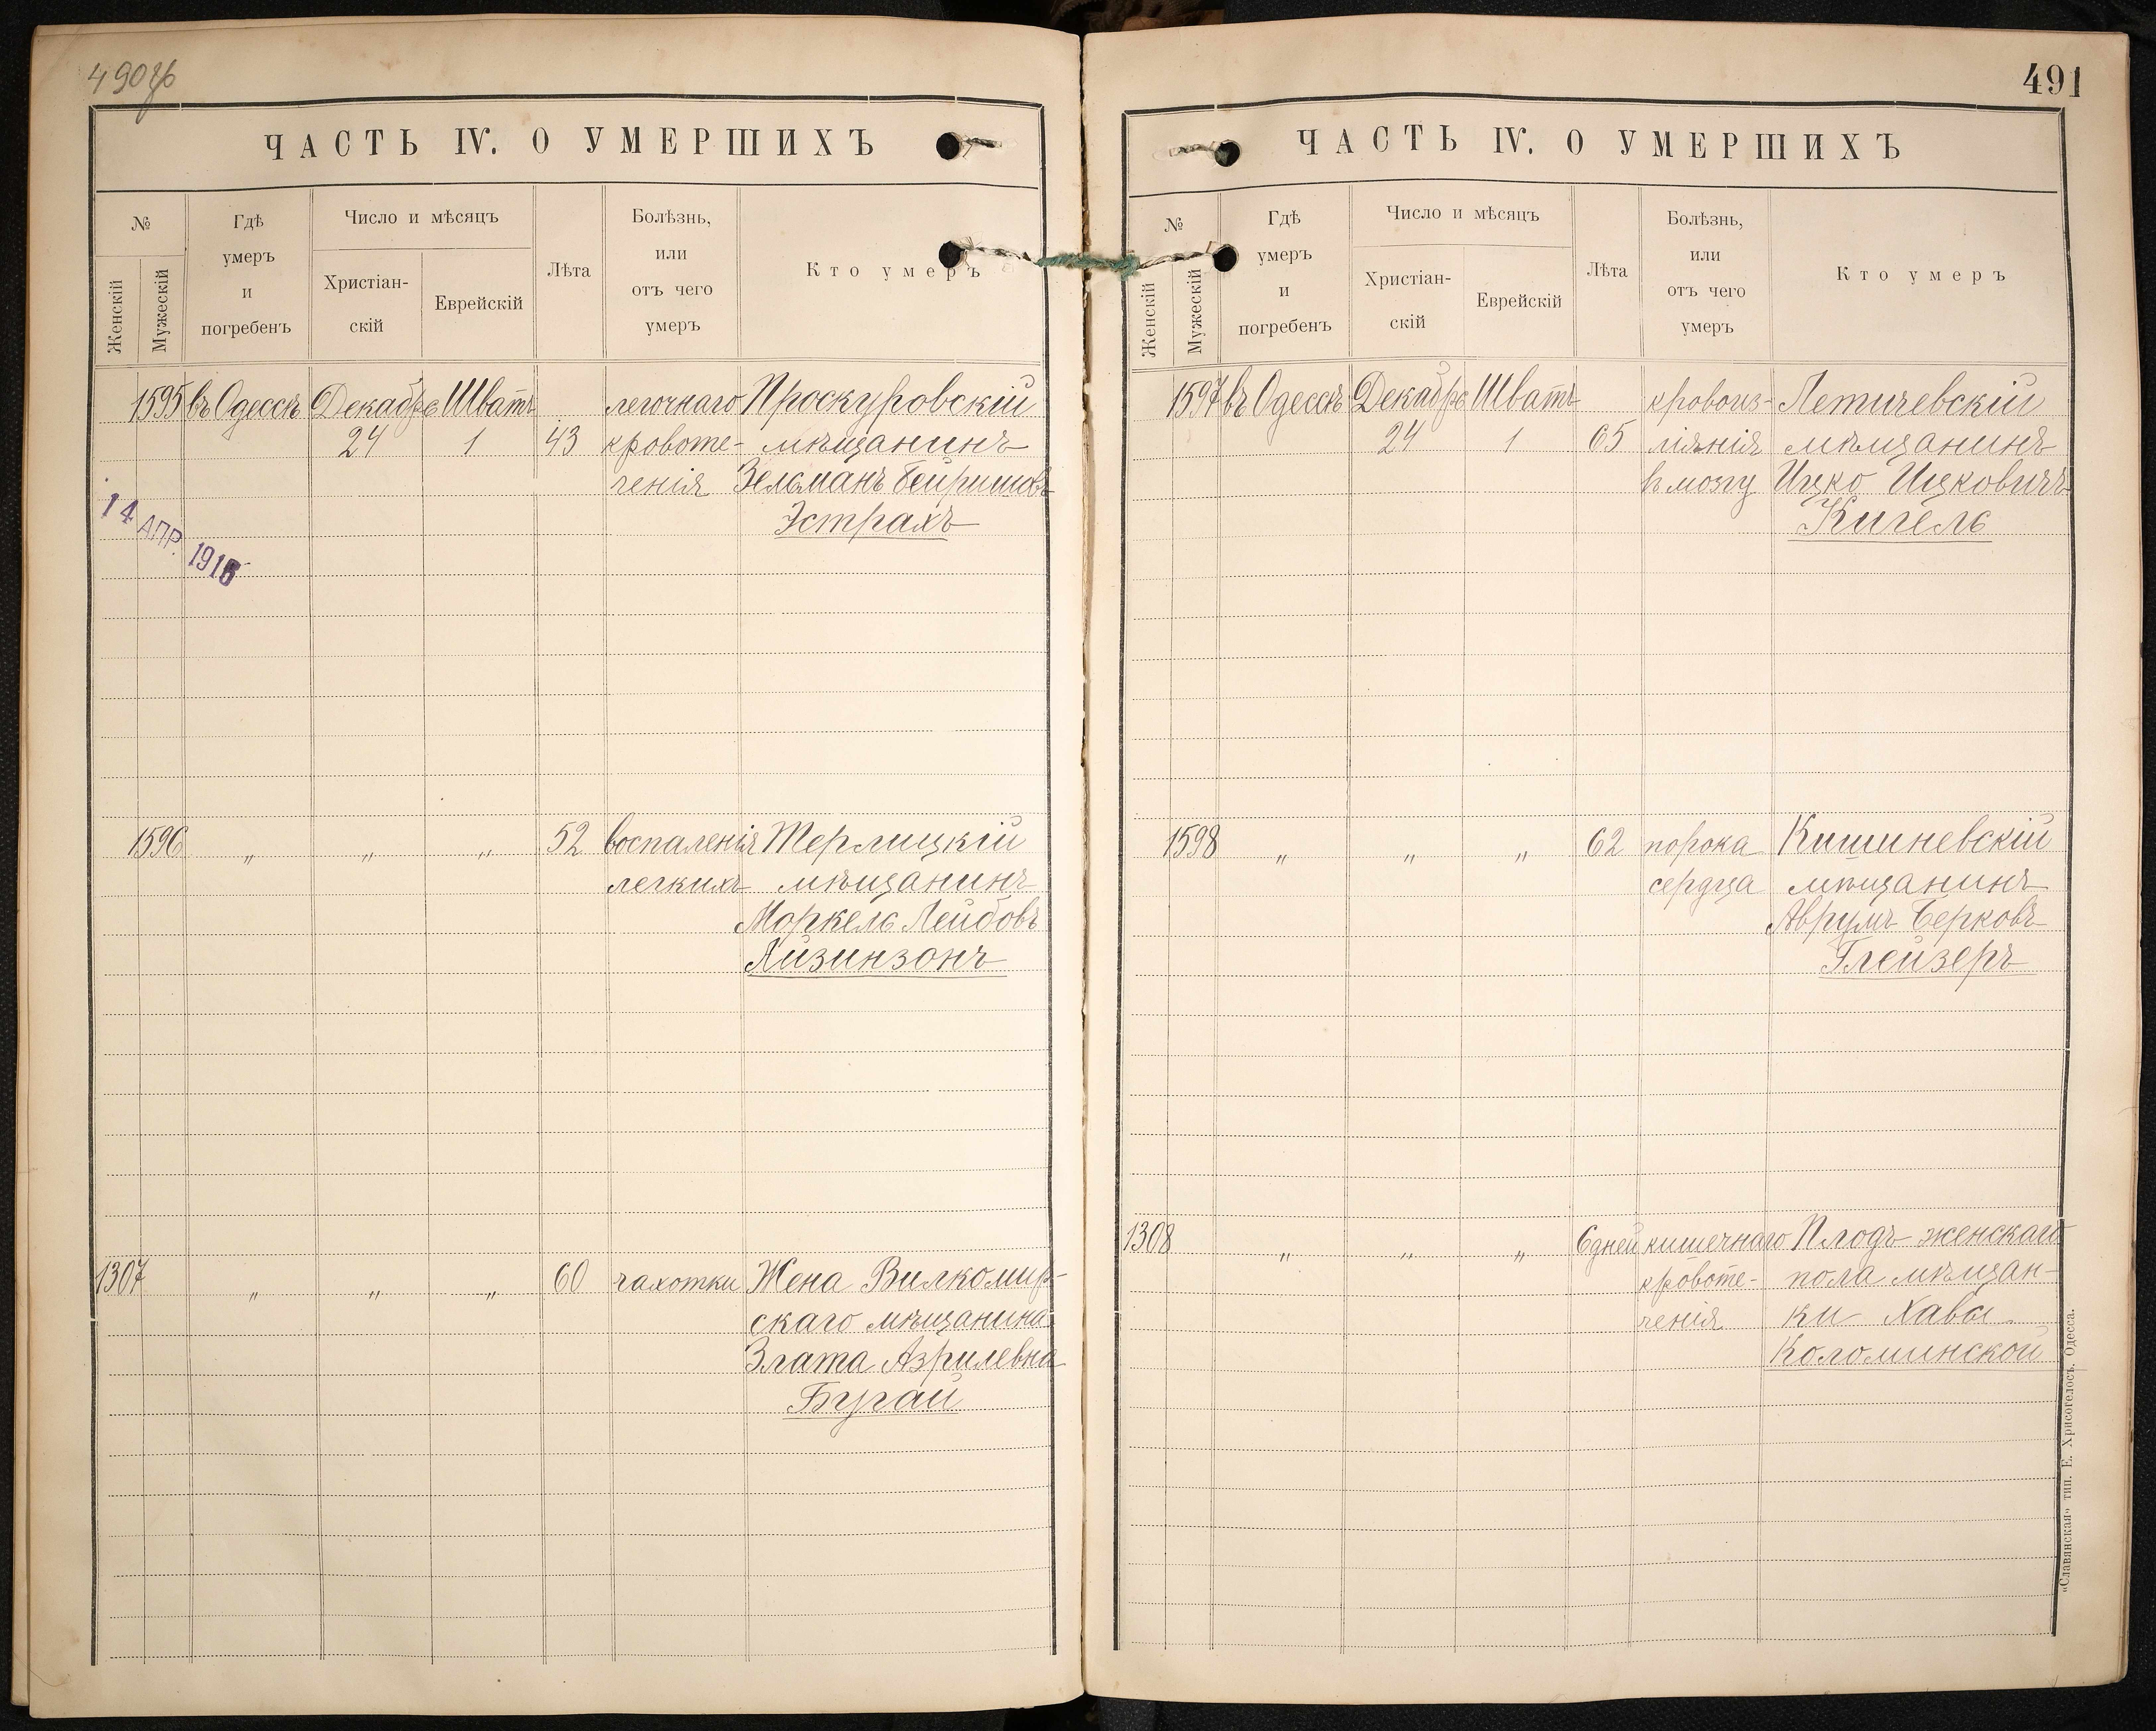 490
ЧАСТЬ IV. О УМЕРШИХЪ
№
Женскій
Мужескій
Гдѣ
умеръ
и
погребенъ
Число и мѣсяцъ
Христіан-
скій
Еврейскій
Лѣта
Болѣзнь,
или
отъ чего
умеръ
Кто умеръ
1595 въ Одессѣ Декабрь Шватъ легочнаго Проскуровскій
24 1 43 кровоте- мѣщанинъ
ченія Зельманъ Бейришовъ
Эстрахъ
14 АПР. 1916
1596 " " " 52 воспаленія Терлицкій
легкихъ мѣщанинъ
Моркель Лейбовъ
Айзинзонъ
1307 " " " 60 чахотки Жена Вилкомир-
скаго мѣщанина
Злата Азрилевна
Бугай
491
ЧАСТЬ IV. О УМЕРШИХЪ
№
Женскій
Мужескій
Гдѣ
умеръ
и
погребенъ
Число и мѣсяцъ
Христіан-
скій
Еврейскій
Лѣта
Болѣзнь,
или
отъ чего
умеръ
Кто умеръ
1597 въ Одессѣ Декабрь Шватъ кровоиз- Летичевскій
24 1 65 ліянія мѣщанинъ
въ мозгу Ицко Ицковичъ
Кигель
1598 " " " 62 порока Кишиневскій
сердца мѣщанинъ
Аврумъ Берковъ
Глейзеръ
1308 " " " 6 дней кишечнаго Плодъ женскаго
кровоте- пола мѣщан-
ченія ки Хавы
Коломинской
«Славянская» тип. Е. Хрисогелосъ. Одесса.